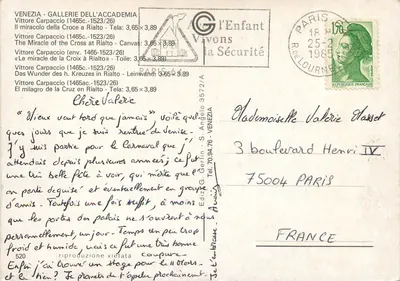 VENEZIA - GALLERIE DELL'ACCADEMIA
Vittore Carpaccio (1465c.-1523/26)
Il miracolo della Croce a Rialto - Tela: 3,65 x 3,89
Vittore Carpaccio (1465c.-1523/26)
The Miracle of the Cross at Rialto - Canvas: 3,65 x 3,89
Vittore Carpaccio (env. 1465-1523/26)
«Le miracle de la Croix à Rialto» - Toile: 3,65 x 3,89
Vittore Carpaccio (1465c.-1523/26)
Das Wunder des h. Kreuzes in Rialto - Leinwand: 3,65 x 3,89
Vittore Carpaccio (1465c.-1523/26)
El milagro de la Cruz en Rialto
Chère Valérie
"Vieux vaut tard que jamais" voilà quel
ques jours que je suis rentrée de Venise.
J'y suis partie pour le Carnaval que j'
attendais depuis plusieurs années; ce fut
une très belle fête à voir, qui mérite que l'
on parte déguisé et éventuellement en groupe
d'amis. Toutefois une fois suffit, à moins
que les portes des palais ne s'ouvrent à nous
personnellement, un jour. Temps un peu trop
froid et humide, mais ce fut une très bonne
coupure.
Enfin j'ai trouvé un stage pour le
et le tien? Je promets de t'appeler prochainement.
Je t'embrasse
520
riproduzione vietata
Ediz. G. - S. Angelo 3572/A
Tel. 70.94.76 - VENEZIA
l'Enfant
Vivons
la Sécurité
PARIS
18
25-2
1985
R. DE LOURMEL
1,70
Mademoiselle Valérie
3 boulevard Henri IV
75004 PARIS
FRANCE